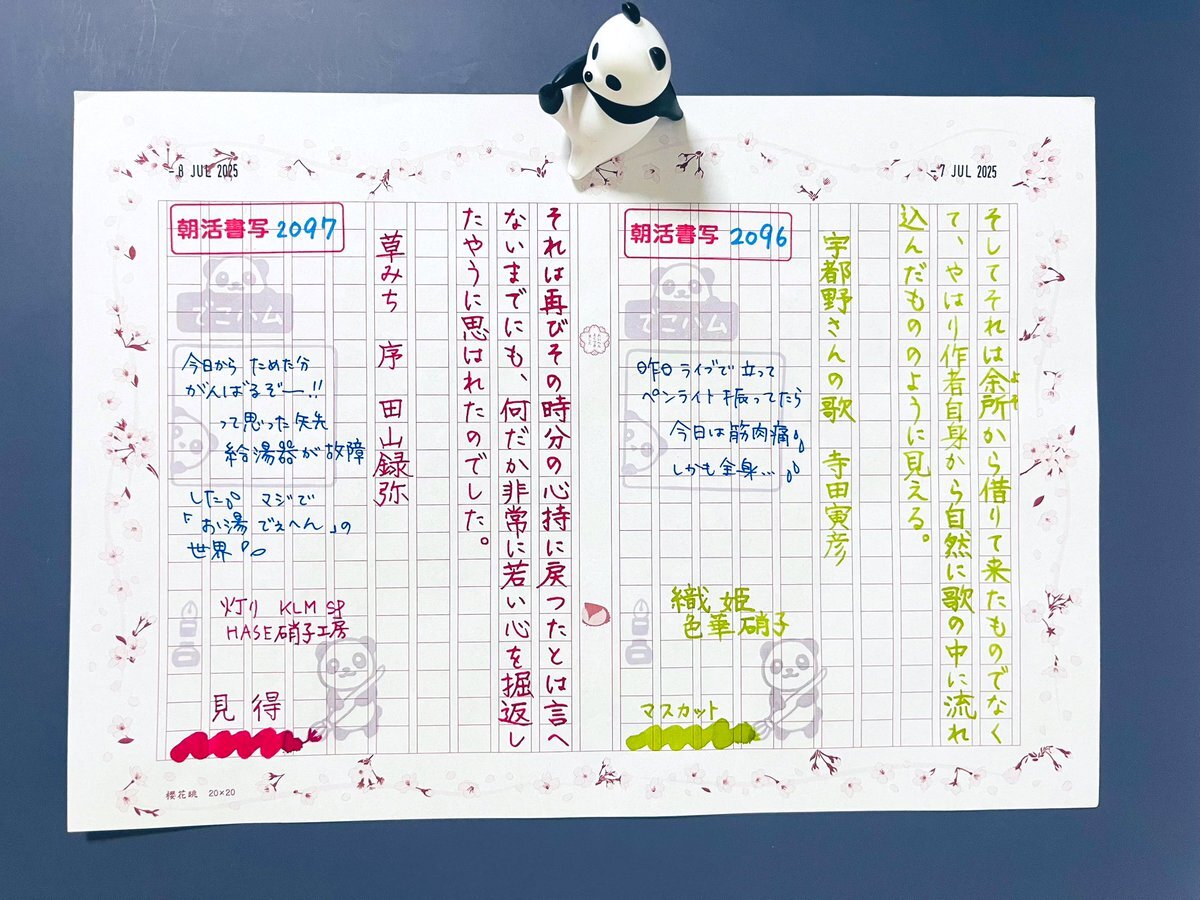 - 7 JUL 2025
そしてそれは余所から借りて来たものでなく
よそ
て、やはり作者自身から自然に歌の中に流れ
込んだもののように見える。
宇都野さんの歌 寺田寅彦
朝活書写 2096
でこハム
昨日 ライブで 立って
ペンライト 振ってたら
今日は 筋肉痛
しかも 全身…
織姫
色華硝子
マスカット
- 8 JUL 2025
それは再びその時分の心持に戻つたとは言へ
ないまでにも、何だか非常に若い心を掘返し
たやうに思はれたのでした。
草みち 序 田山録弥
朝活書写 2097
でこハム
今日から ためた分
がんばるぞー!!
って思った矢先
給湯器が故障
した マジで
「お湯 でぇへん」の
世界
灯り KLM SP
HASE硝子工房
見得
櫻花眺 20×20